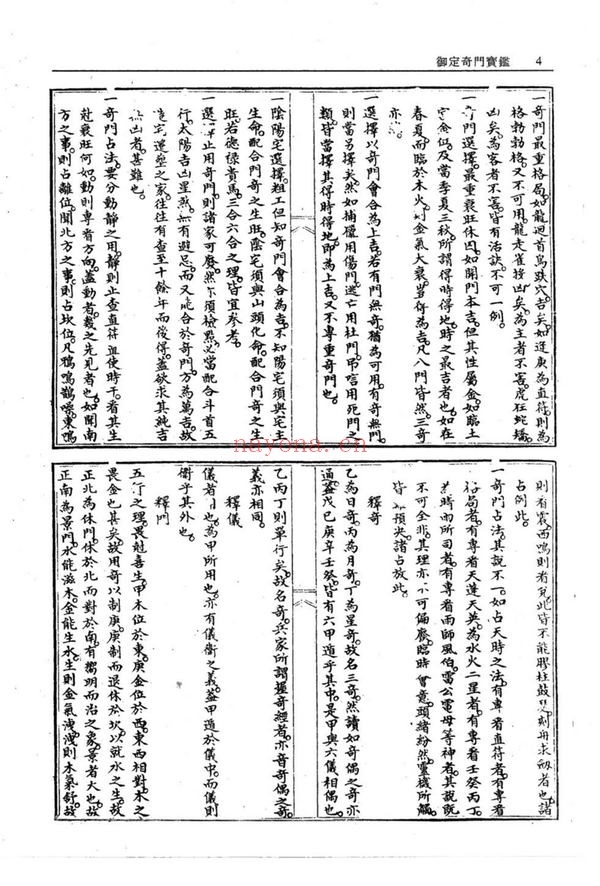 御定奇門寶鑑 4
一奇門最重格局如龍迴首鳥跌穴吉矣如逢庚為直符則為
格勃勃格又不可用龍走雀投凶矣為主者不害虎狂蛇矯
凶矣為客者不害皆有活訣不可一例
一奇門選擇最重衰旺休囚如開門本吉但其性屬金如臨土
宮金似及當季夏三秋所謂得時得地時之最吉者也如在
春夏而臨於木火則金氣大衰豈得為吉凡八門皆然三奇
亦
一選擇以奇門會合為上吉若有門無奇猶為可用有奇無門
則當另擇矣然如捕獵用傷門逃亡用杜門弔唁用死門之
類皆當擇其得時得地即為上吉又不專重奇門也
一陰陽宅選擇粗工但知奇門會合為吉不知陽宅須與宅主
生命配合門奇之生旺陰宅須與山頭化命配合門奇之生
旺若德祿貴馬三合六合之理皆宜參考
一選擇止用奇門則諸家可廢然不須檢點必當配合斗首五
行太陽吉凶星煞無有避忌而又能合於奇門方為萬吉故
造宅遷塋之家往往有查至十餘年而後得蓋欲求其純吉
無凶者甚難也
一奇門占法要分動靜之用靜則止查直符直使時干看其生
尅衰旺何如動則專看方向蓋動者幾之先見者也如聞南
方之事則占離位聞北方之事則占坎位凡鴉鳴鵲噪東鳴
則看震西鳴則看兌此皆不能膠柱鼓瑟刻舟求劍者也諸
占例此
一奇門占法其說不一如占天時之法有專看直符者有專看
格局者有專看天蓬天英為水火二星者有專看壬癸丙丁
為時雨所司者有專看雨師風伯雷公電母等神者其說既
不可全非其理亦不可偏廢臨時會意頭緒紛然靈機所觸
皆如預決諸占放此
釋奇
乙為日奇丙為月奇丁為星奇故名三奇然讀如奇偶之奇亦
通蓋戊己庚辛壬癸皆有六甲遁乎其中是甲與六儀相偶也
乙丙丁則單行矣故名奇兵家所謂握奇經者亦音奇偶之奇
義亦相同
釋儀
儀者也為甲所用也亦有儀衛之義蓋甲遁於儀中而儀則
衛乎其外也
釋門
五行之理畏尅喜生甲木位於東庚金位於西東西相對木之
畏金也甚矣故用奇以制庚庚制而退休於坎以就水之生故
正北為休門休於北而對於南有嚮明而治之象景者大也故
正南為景門水能滋木金能生水生則金氣洩洩則木氣舒故
nayona.cn